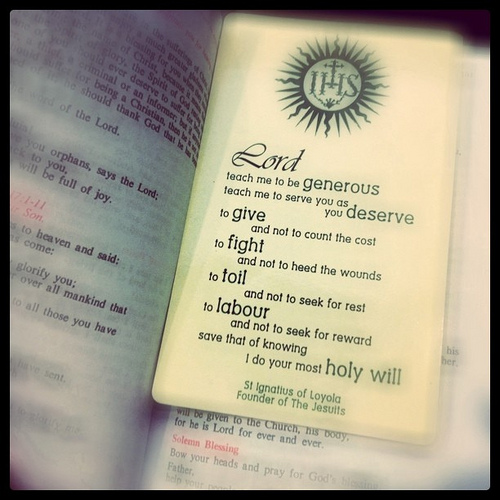 ever deserve to suffer
a criminal or an informer, but
for being a Christian, then
should thank God that he
of the Lord.
you orphans, says the Lord;
to you,
will be full of joy.
7:1-11
Son.
to heaven and said:
come:
glorify you;
over all mankind that
to all those you have
have sent.
IHS
Lord
teach me to be generous
teach me to serve you as
you deserve
to give
and not to count the cost
to fight
and not to heed the wounds
to toil
and not to seek for rest
to labour
and not to seek for reward
save that of knowing
I do your most holy will
St Ignatius of Loyola
Founder of The Jesuits
his
her.
will be given to the Church, his body,
for he is Lord for ever and ever.
Solemn Blessing
Bow your heads and pray for God's blessing
Father,
help your